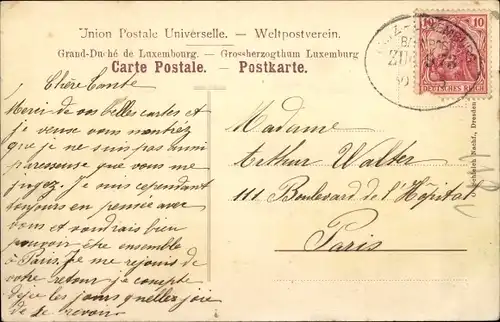 Union Postale Universelle. – Weltpostverein.
Grand-Duché de Luxembourg. – Grossherzogthum Luxemburg
Carte Postale. – Postkarte.
10 10
DEUTSCHES REICH
ZUG
Chère Tante
Merci de vos belles cartes et
je veux vous montrez
que je ne suis pas aussi
paresseuse que vous me
jugez. Je suis cependant
toujours en pensée avec
vous et voudrais bien
pouvoir être ensemble
à Paris. Je me rejouis de
votre retour je compte
déjà les jours quelle joie
de se revoir
Madame
Arthur Walter
111 Boulevard de l'Hôpital
Paris
Nachf., Dresden